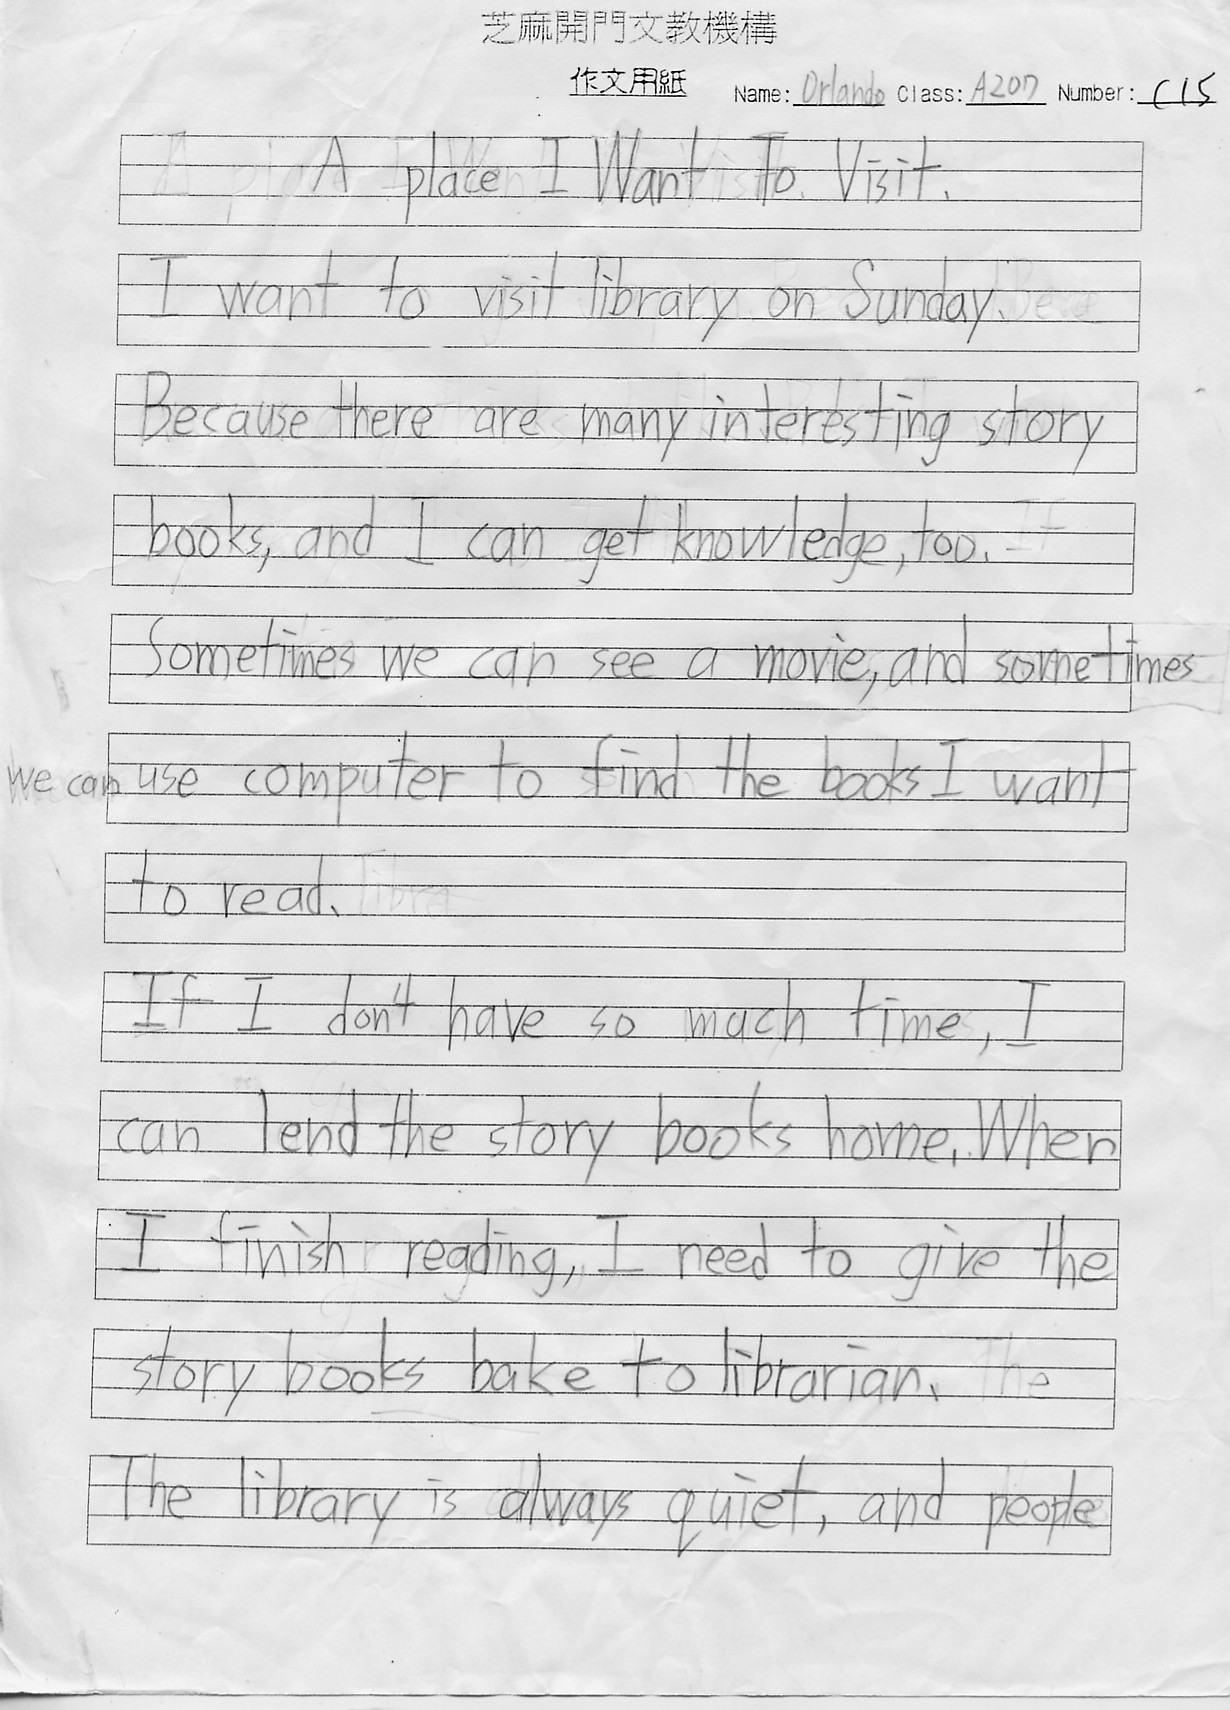 芝麻開門文教機構
作文用紙 Name: Orlando Class: A207 Number: C15
A place I Want To Visit.
I want to visit library on Sunday.
Because there are many interesting story
books, and I can get knowledge, too.
Sometimes we can see a movie, and sometimes
we can use computer to find the books I want
to read.
If I don't have so much time, I
can lend the story books home. When
I finish reading, I need to give the
story books bake to librarian.
The library is always quiet, and people